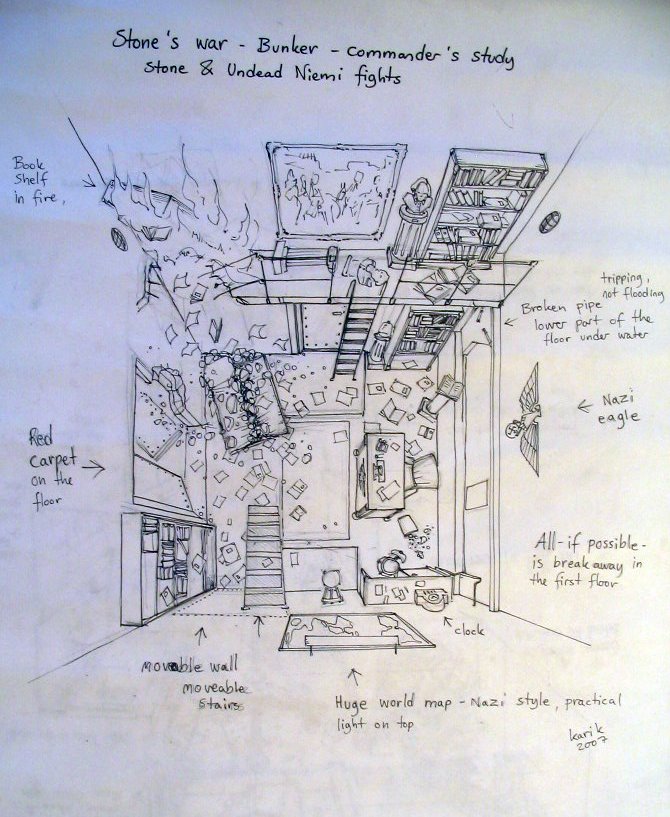 Stone's war - Bunker - commander's study
Stone & Undead Niemi fights
Book
Shelf
in fire,
tripping,
not flooding
Broken pipe
lower part of the
floor under water
Nazi
eagle
Red
carpet
on the
floor
All-if possible-
is breakaway in
the first floor
clock
movable wall
moveable
stairs
Huge world map - Nazi style, practical
light on top
karik
2007